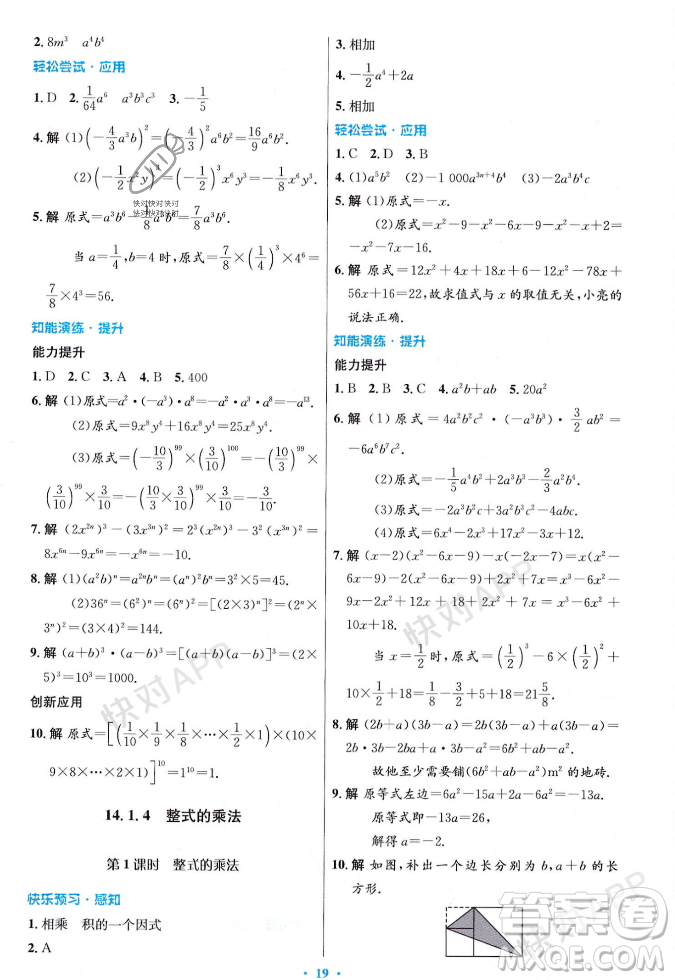 2. 8m³　a⁴b⁴
轻松尝试·应用
1. D　2. 1/64 a⁶　a³b³c³　3. -1/5
4. 解 (1)(-4/3 a³b)²=(-4/3)² a⁶b²=16/9 a⁶b².
(2)(-1/2 x²y)³=(-1/2)³ x⁶y³=-1/8 x⁶y³.
5. 解 原式=a³b⁶-1/8 a³b⁶=7/8 a³b⁶.
当 a=1/4, b=4 时, 原式=7/8×(1/4)³×4⁶=
7/8×4³=56.
知能演练·提升
能力提升
1. D　2. C　3. A　4. B　5. 400
6. 解 (1)原式=a²·(-a³)·a⁸=-a⁵·a⁸=-a¹³.
(2)原式=9x⁸y⁴+16x⁸y⁴=25x⁸y⁴.
(3)原式=(-10/3)⁹⁹×(3/10)¹⁰⁰=-(10/3)⁹⁹
×(3/10)⁹⁹×3/10=-(10/3×3/10)⁹⁹×3/10=-3/10.
7. 解 (2x²ⁿ)³-(3x³ⁿ)²=2³(x²ⁿ)³-3²(x³ⁿ)²=
8x⁶ⁿ-9x⁶ⁿ=-x⁶ⁿ=-10.
8. 解 (1)(a²b)ⁿ=(aⁿ)²·bⁿ=3²×5=45.
(2)36ⁿ=(6²)ⁿ=(6ⁿ)²=[(2×3)ⁿ]²=
(2ⁿ×3ⁿ)²=(3×4)²=144.
9. 解 (a+b)³·(b+c)³=[(a+b)(b+c)]³=(2×
5)³=10³=1000.
创新应用
10. 解 原式=[(1/10×1/9×1/8×…×1/2×1)×(10×
9×8×…×2×1)]¹⁰=1¹⁰=1.
14.1.4　整式的乘法
第1课时　整式的乘法
快乐预习·感知
1. 相乘　积的一个因式
2. A
3. 相加
4. -1/2 a⁴+2a
5. 相加
轻松尝试·应用
1. C　2. D　3. B
4. (1)a⁵b²　(2)-1 000a³ⁿ⁺⁴b²　(3)-3a²bc
5. 解 (1)原式=-x.
(2)原式=x²-9-x²-6x-9-x²-x+2=
-x²-7x-16.
6. 解 原式=12x²+4x+18x+6-12x²-78x+
56x+16=22,故求值式与 x 的取值无关,小亮的
说法正确.
知能演练·提升
能力提升
1. B　2. B　3. C　4. a²b+ab　5. 20a²
6. 解 (1)原式=4a²b²c²·(-a³b³)·3/2 ab²=
-6a⁶b⁷c².
(2)原式=-1/5 a²b²+a²b³c.
(3)原式=-2a³b²c+3a²b³c.
(4)原式=6x⁴-4x³-x²-10x+12.
7. 解 (x-2)(x²-6x-9)-x(-2x-7)=x(x²-
6x-9)-2(x²-6x-9)+2x²+7x=x³-6x²-
9x-2x²+12x+18+2x²+7x=x³-6x²+
10x+18.
当 x=1/2时,原式=(1/2)³-6×(1/2)²+
10×1/2+18=1/8-6/4+5+18=21 5/8.
8. 解 (2b+a)(3b-a)+2b(3b-a)=(6b²-2ab+
3ab-a²)+6b²-2ab=12b²-ab-a².
故他至少需要铺(12b²-ab-a²)m²的地砖.
9. 解 原等式左边=6a²-15a-6a²+2a=-13a.
原等式即-13a=26,
解得 a=-2.
10. 解 如图,补出一个边长分别为 b,1/2 a+1/2 b 的长
方形.
19
快对快对快对
快对快对快对
快对APP
快对APP
快对APP
答案圈